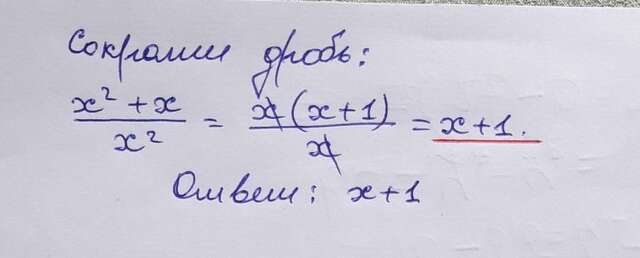 Сократи дробь:
x² + x / x² = x(x+1) / x = x+1.
Ответ: x+1